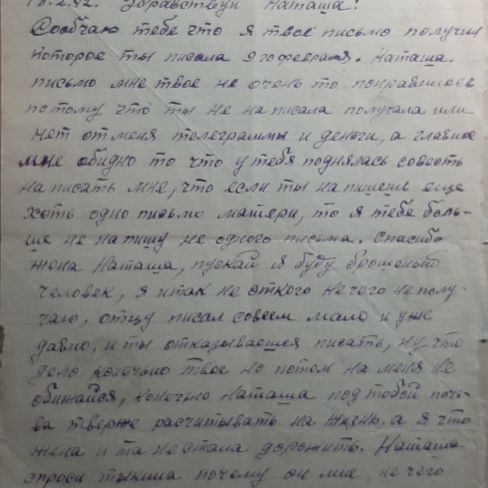 18.2.42. Здравствуй Наташа!
Сообчаю тебе что я твое письмо получил
которое ты писала 9го февраля. Наташа
письмо мне твое не очень то понравилось
потому что ты не написала получала или
нет от меня телеграммы и деньги, а главное
мне обидно то что у тебя поднялась совесть
написать мне, что если ты напишеш еще
хоть одно письмо матери, то я тебе боль-
ше не напишу не одного письма. Спасибо
жена Наташа, пускай я буду брошеный
человек, я итак не откого нечего не полу-
чаю, отцу писал совсем мало и уже
давно, и ты отказываешся писать, ну что
дело конечьно твое но потом на меня не
обижайся, конечьно Наташа под тобой почь-
ва тверже расчитывать на жизнь, а я что
жена и та не стала дорожить. Наташа
спроси почему он мне не чего